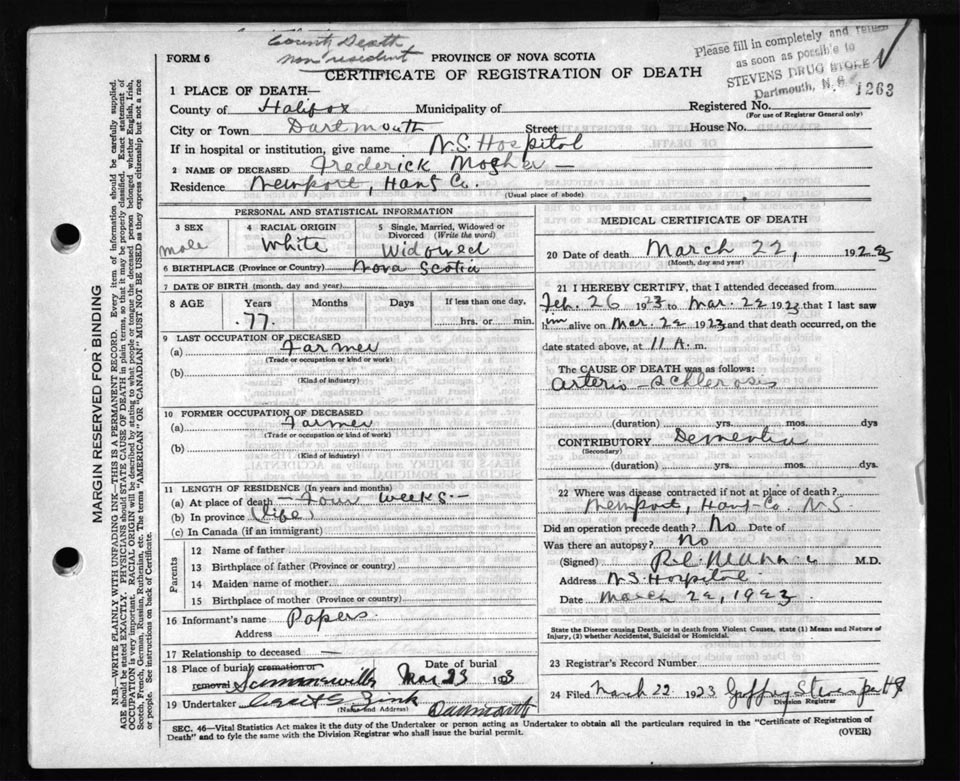 County Death
non resident
Please fill in completely and return
as soon as possible to
STEVENS DRUG STORE
Dartmouth, N. S.
1263
FORM 6
PROVINCE OF NOVA SCOTIA
CERTIFICATE OF REGISTRATION OF DEATH
1 PLACE OF DEATH—
County of Halifax Municipality of Registered No.
(For use of Registrar General only)
City or Town Dartmouth Street House No.
If in hospital or institution, give name N.S. Hospital
2 NAME OF DECEASED Frederick Mosher
Residence Newport, Hants Co.
(Usual place of abode)
PERSONAL AND STATISTICAL INFORMATION
3 SEX 4 RACIAL ORIGIN 5 Single, Married, Widowed or Divorced (Write the word)
male White Widowed
6 BIRTHPLACE (Province or Country) Nova Scotia
7 DATE OF BIRTH (month, day and year)
8 AGE Years Months Days If less than one day,
77 hrs. or min.
9 LAST OCCUPATION OF DECEASED
(a) Farmer
(Trade or occupation or kind or work)
(b)
(Kind of industry)
10 FORMER OCCUPATION OF DECEASED
(a) Farmer
(Trade or occupation or kind of work)
(b)
(Kind of industry)
11 LENGTH OF RESIDENCE (In years and months)
(a) At place of death — Four weeks —
(b) In province (life)
(c) In Canada (if an immigrant)
Parents
12 Name of father
13 Birthplace of father (Province or country)
14 Maiden name of mother
15 Birthplace of mother (Province or country)
16 Informant's name Papers
Address
17 Relationship to deceased —
18 Place of burial cremation or Date of burial
removal Mar 23 1923
19 Undertaker Zink Dartmouth
(Name and Address)
MEDICAL CERTIFICATE OF DEATH
20 Date of death March 22, 1923
(Month, day and year)
21 I HEREBY CERTIFY, that I attended deceased from
Feb. 26 1923 to Mar. 22 1923 that I last saw
him alive on Mar. 22 1923 and that death occurred, on the
date stated above, at 11 A. m.
The CAUSE OF DEATH was as follows:
Arterio-Schlerosis
(duration) yrs. mos. dys
CONTRIBUTORY Dementia
(Secondary)
(duration) yrs. mos. dys.
22 Where was disease contracted if not at place of death?
Newport, Hants Co. N.S.
Did an operation precede death? No Date of
Was there an autopsy? No
(Signed) M.D.
Address N.S. Hospital
Date March 22, 1923
State the Disease causing Death, or in death from Violent Causes, state (1) Means and Nature of
Injury, (2) whether Accidental, Suicidal or Homicidal.
23 Registrar's Record Number
24 Filed March 22 1923
Division Registrar
SEC. 46—Vital Statistics Act makes it the duty of the Undertaker or person acting as Undertaker to obtain all the particulars required in the "Certificate of Registration of
Death" and to fyle the same with the Division Registrar who shall issue the burial permit. (OVER)
MARGIN RESERVED FOR BINDING
N.B.—WRITE PLAINLY WITH UNFADING INK—THIS IS A PERMANENT RECORD. Every item of information should be carefully supplied.
AGE should be stated EXACTLY. PHYSICIANS should STATE CAUSE OF DEATH in plain terms, so that it may be properly classified. Exact statement of
OCCUPATION is very important. RACIAL ORIGIN will be described by stating to what people or tongue the deceased person belonged whether English, Irish,
Scotch, French, German, Russian, Ruthenian, etc. The terms "AMERICAN" OR "CANADIAN" MUST NOT BE USED as they express citizenship but not a race
or people. See instructions on back of Certificate.